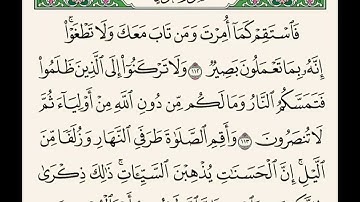 فَٱسْتَقِمْ كَمَآ أُمِرْتَ وَمَن تَابَ مَعَكَ وَلَا تَطْغَوْا۟ ۚ
إِنَّهُۥ بِمَا تَعْمَلُونَ بَصِيرٌ ۝١١٢ وَلَا تَرْكَنُوٓا۟ إِلَى ٱلَّذِينَ ظَلَمُوا۟
فَتَمَسَّكُمُ ٱلنَّارُ وَمَا لَكُم مِّن دُونِ ٱللَّهِ مِنْ أَوْلِيَآءَ ثُمَّ
لَا تُنصَرُونَ ۝١١٣ وَأَقِمِ ٱلصَّلَوٰةَ طَرَفَىِ ٱلنَّهَارِ وَزُلَفًا مِّنَ
ٱلَّيْلِ ۚ إِنَّ ٱلْحَسَنَـٰتِ يُذْهِبْنَ ٱلسَّيِّـَٔاتِ ۚ ذَٰلِكَ ذِكْرَىٰ